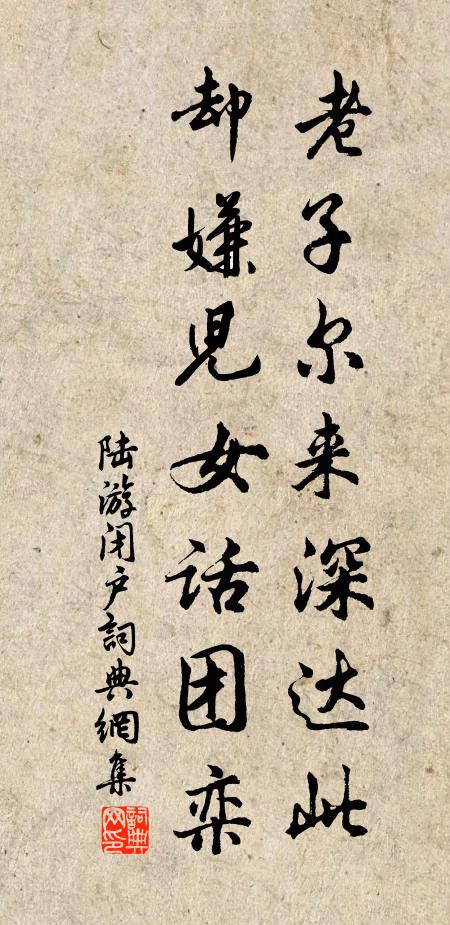 老子尔来深达此
却嫌児女话团栾
陆游闭户詞典網集
詞典网印